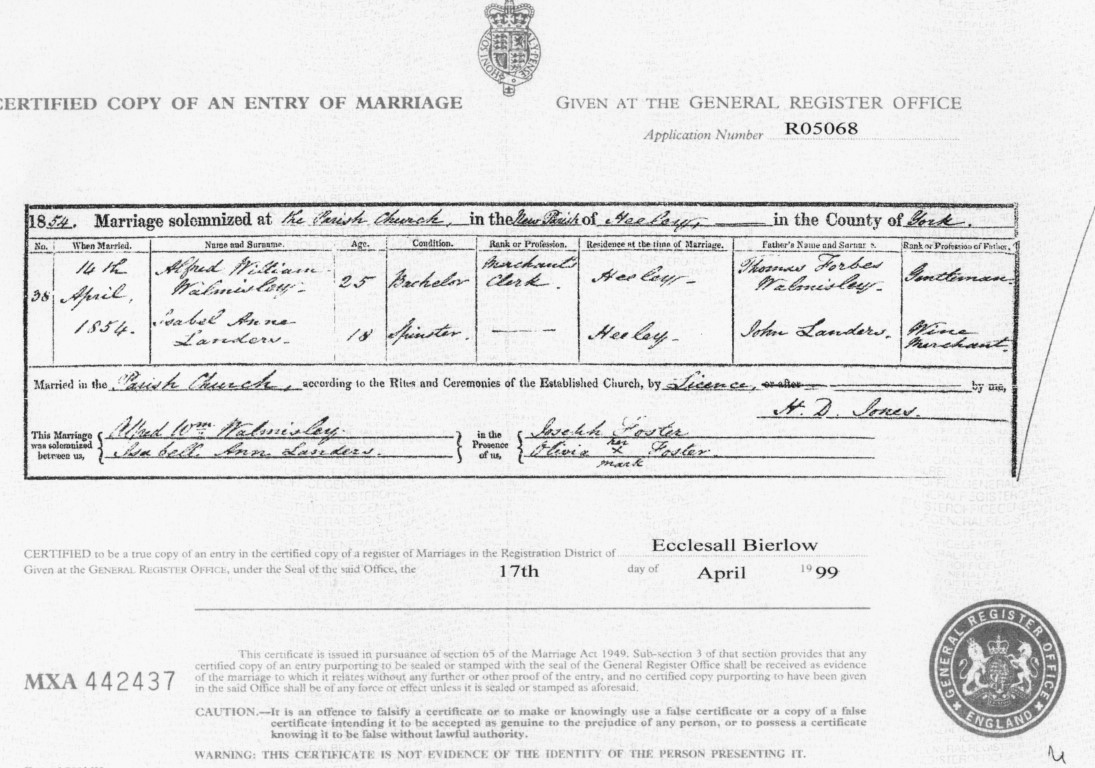 CERTIFIED COPY OF AN ENTRY OF MARRIAGE
GIVEN AT THE GENERAL REGISTER OFFICE
Application Number R05068
1854. Marriage solemnized at the Parish Church, in the New Parish of Heeley, in the County of York.
No. When Married. Name and Surname. Age. Condition. Rank or Profession. Residence at the time of Marriage. Father's Name and Surname. Rank or Profession of Father.
38 14th April, 1854.
Alfred William Walmisley. 25 Bachelor Merchant's Clerk. Heeley. Thomas Forbes Walmisley. Gentleman.
Isabel Anne Landers. 18 Spinster. Heeley. John Landers. Wine Merchant.
Married in the Parish Church, according to the Rites and Ceremonies of the Established Church, by Licence, or after by me,
H. D. Jones.
This Marriage was solemnized between us, { Alfred Wm Walmisley. } in the Presence of us, { Joseph Foster
Isabell Ann Landers. Olivia her x mark Foster.
CERTIFIED to be a true copy of an entry in the certified copy of a register of Marriages in the Registration District of Ecclesall Bierlow
Given at the GENERAL REGISTER OFFICE, under the Seal of the said Office, the 17th day of April 1999
This certificate is issued in pursuance of section 65 of the Marriage Act 1949. Sub-section 3 of that section provides that any
certified copy of an entry purporting to be sealed or stamped with the seal of the General Register Office shall be received as evidence
of the marriage to which it relates without any further or other proof of the entry, and no certified copy purporting to have been given
in the said Office shall be of any force or effect unless it is sealed or stamped as aforesaid.
MXA 442437
CAUTION.—It is an offence to falsify a certificate or to make or knowingly use a false certificate or a copy of a false
certificate intending it to be accepted as genuine to the prejudice of any person, or to possess a certificate
knowing it to be false without lawful authority.
WARNING: THIS CERTIFICATE IS NOT EVIDENCE OF THE IDENTITY OF THE PERSON PRESENTING IT.
GENERAL REGISTER OFFICE
ENGLAND